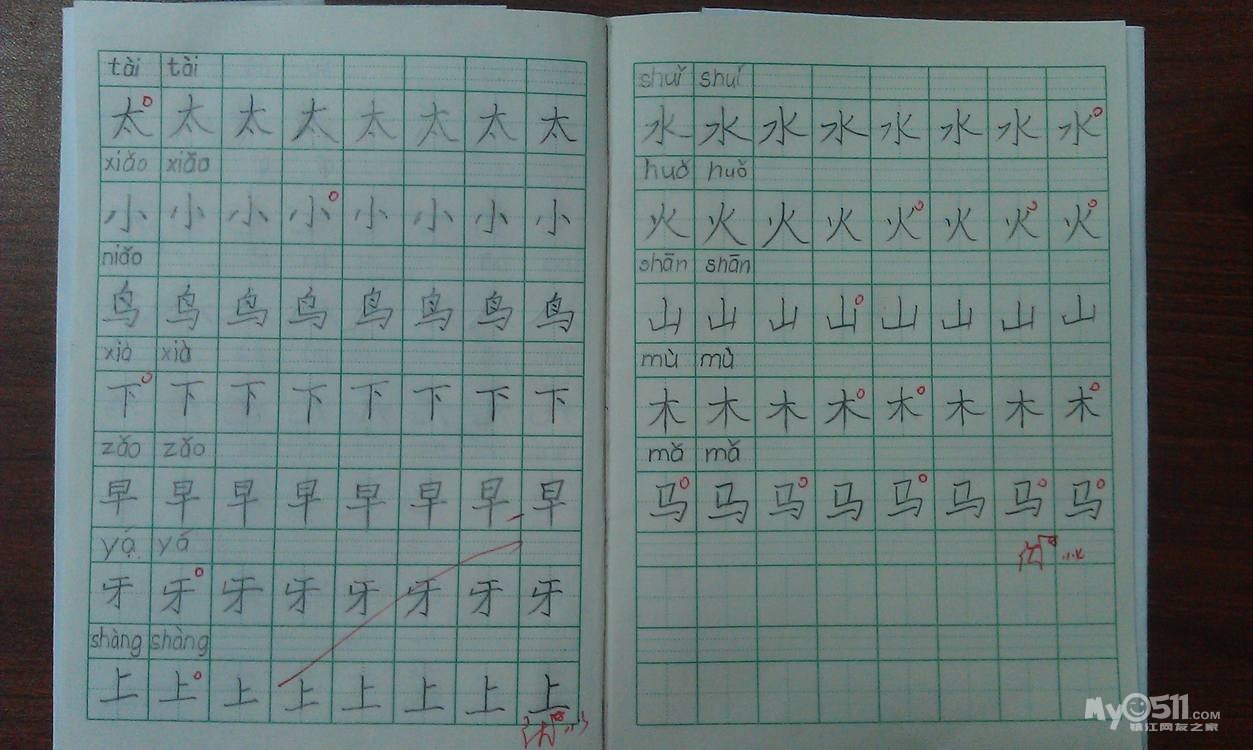 tài tài
太 太 太 太 太 太 太 太
xiǎo xiǎo
小 小 小 小 小 小 小 小
niǎo
鸟 鸟 鸟 鸟 鸟 鸟 鸟 鸟
xià xià
下 下 下 下 下 下 下 下
zǎo zǎo
早 早 早 早 早 早 早 早
yá yá
牙 牙 牙 牙 牙 牙 牙 牙
shàng shàng
上 上 上 上 上 上 上 上
shuǐ shuǐ
水 水 水 水 水 水 水 水
huǒ huǒ
火 火 火 火 火 火 火 火
shān shān
山 山 山 山 山 山 山 山
mù mù
木 木 木 木 木 木 木 木
mǎ mǎ
马 马 马 马 马 马 马 马
My0511.COM
镇江网友之家